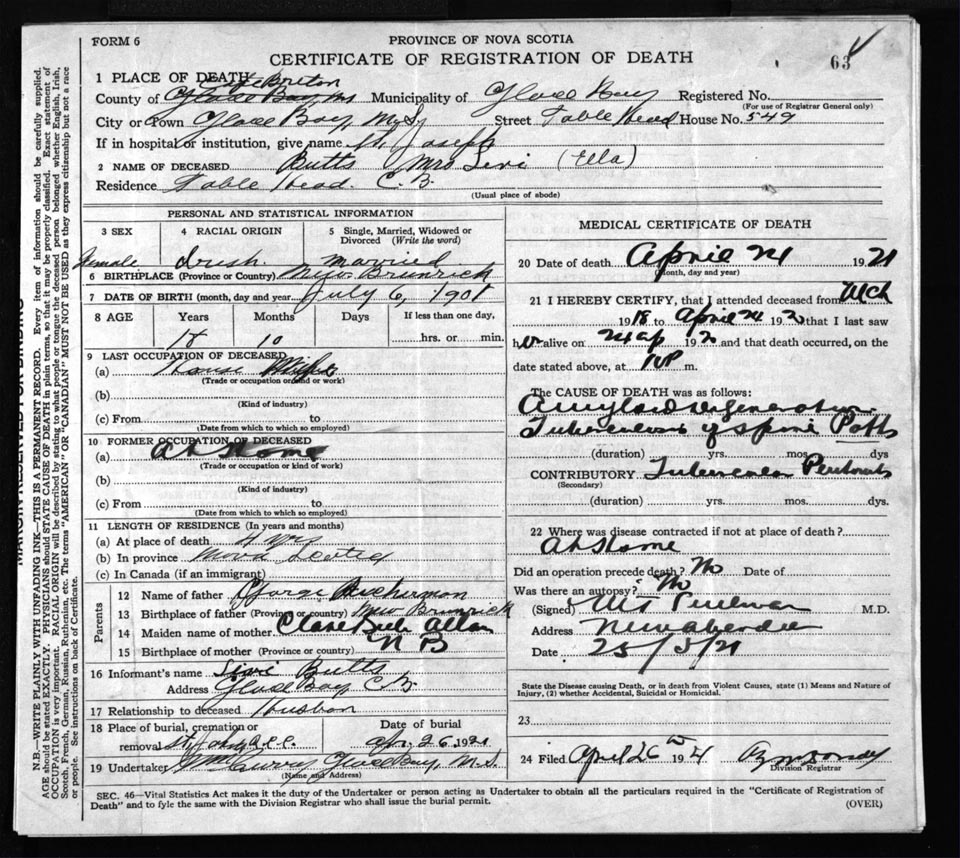 FORM 6
PROVINCE OF NOVA SCOTIA
CERTIFICATE OF REGISTRATION OF DEATH
63
1 PLACE OF DEATH
Cape Breton
County of Glace Bay, NS Municipality of Glace Bay Registered No.
(For use of Registrar General only)
City or Town Glace Bay, Street Table Head House No. 549
If in hospital or institution, give name St. Joseph
2 NAME OF DECEASED Butts Mrs Levi (Ella)
Residence Table Head. C. B.
(Usual place of abode)
PERSONAL AND STATISTICAL INFORMATION
3 SEX 4 RACIAL ORIGIN 5 Single, Married, Widowed or Divorced (Write the word)
Female Irish married
6 BIRTHPLACE (Province or Country) New Brunrick
7 DATE OF BIRTH (month, day and year) July 6, 1901
8 AGE Years Months Days If less than one day,
18 10 hrs. or min.
9 LAST OCCUPATION OF DECEASED
(a) House Wife
(Trade or occupation or kind or work)
(b)
(Kind of industry)
(c) From to
(Date from which to which so employed)
10 FORMER OCCUPATION OF DECEASED
(a) At Home
(Trade or occupation or kind of work)
(b)
(Kind of industry)
(c) From to
(Date from which to which so employed)
11 LENGTH OF RESIDENCE (In years and months)
(a) At place of death 4 yrs
(b) In province Nova Scotia
(c) In Canada (if an immigrant)
Parents
12 Name of father George
13 Birthplace of father (Province or country) New Brunrick
14 Maiden name of mother Clare Allan
15 Birthplace of mother (Province or country) N B
16 Informant's name Levi Butts
Address Glace Bay, C B
17 Relationship to deceased Husban
18 Place of burial, cremation or removal Date of burial
Apr. 26 1921
19 Undertaker Curry Glace Bay, N. S.
(Name and Address)
MEDICAL CERTIFICATE OF DEATH
20 Date of death April 24 1921
(Month, day and year)
21 I HEREBY CERTIFY, that I attended deceased from Mch
1918 to April 24 192 that I last saw
her alive on 24 ap 192 and that death occurred, on the
date stated above, at m.
The CAUSE OF DEATH was as follows:
Amyloid degeneration
Tuberculosis of spine Potts
(duration) yrs. mos. dys
CONTRIBUTORY Tubercular
(Secondary)
(duration) yrs. mos. dys.
22 Where was disease contracted if not at place of death?
At Home
Did an operation precede death? No Date of
Was there an autopsy? No
(Signed) M.D.
Address New Aberdee
Date 25/5/21
State the Disease causing Death, or in death from Violent Causes, state (1) Means and Nature of
Injury, (2) whether Accidental, Suicidal or Homicidal.
23
24 Filed April 26th 192
Division Registrar
SEC. 46—Vital Statistics Act makes it the duty of the Undertaker or person acting as Undertaker to obtain all the particulars required in the "Certificate of Registration of
Death" and to fyle the same with the Division Registrar who shall issue the burial permit. (OVER)
MARGIN RESERVED FOR BINDING
N.B.—WRITE PLAINLY WITH UNFADING INK—THIS IS A PERMANENT RECORD. Every item of information should be carefully supplied.
AGE should be stated EXACTLY. PHYSICIANS should STATE CAUSE OF DEATH in plain terms, so that it may be properly classified. Exact statement of
OCCUPATION is very important. RACIAL ORIGIN will be described by stating to what people or tongue the deceased person belonged, whether English, Irish,
Scotch, French, German, Russian, Ruthenian, etc. The terms "AMERICAN" OR "CANADIAN" MUST NOT BE USED as they express citizenship but not a race
or people. See instructions on back of Certificate.